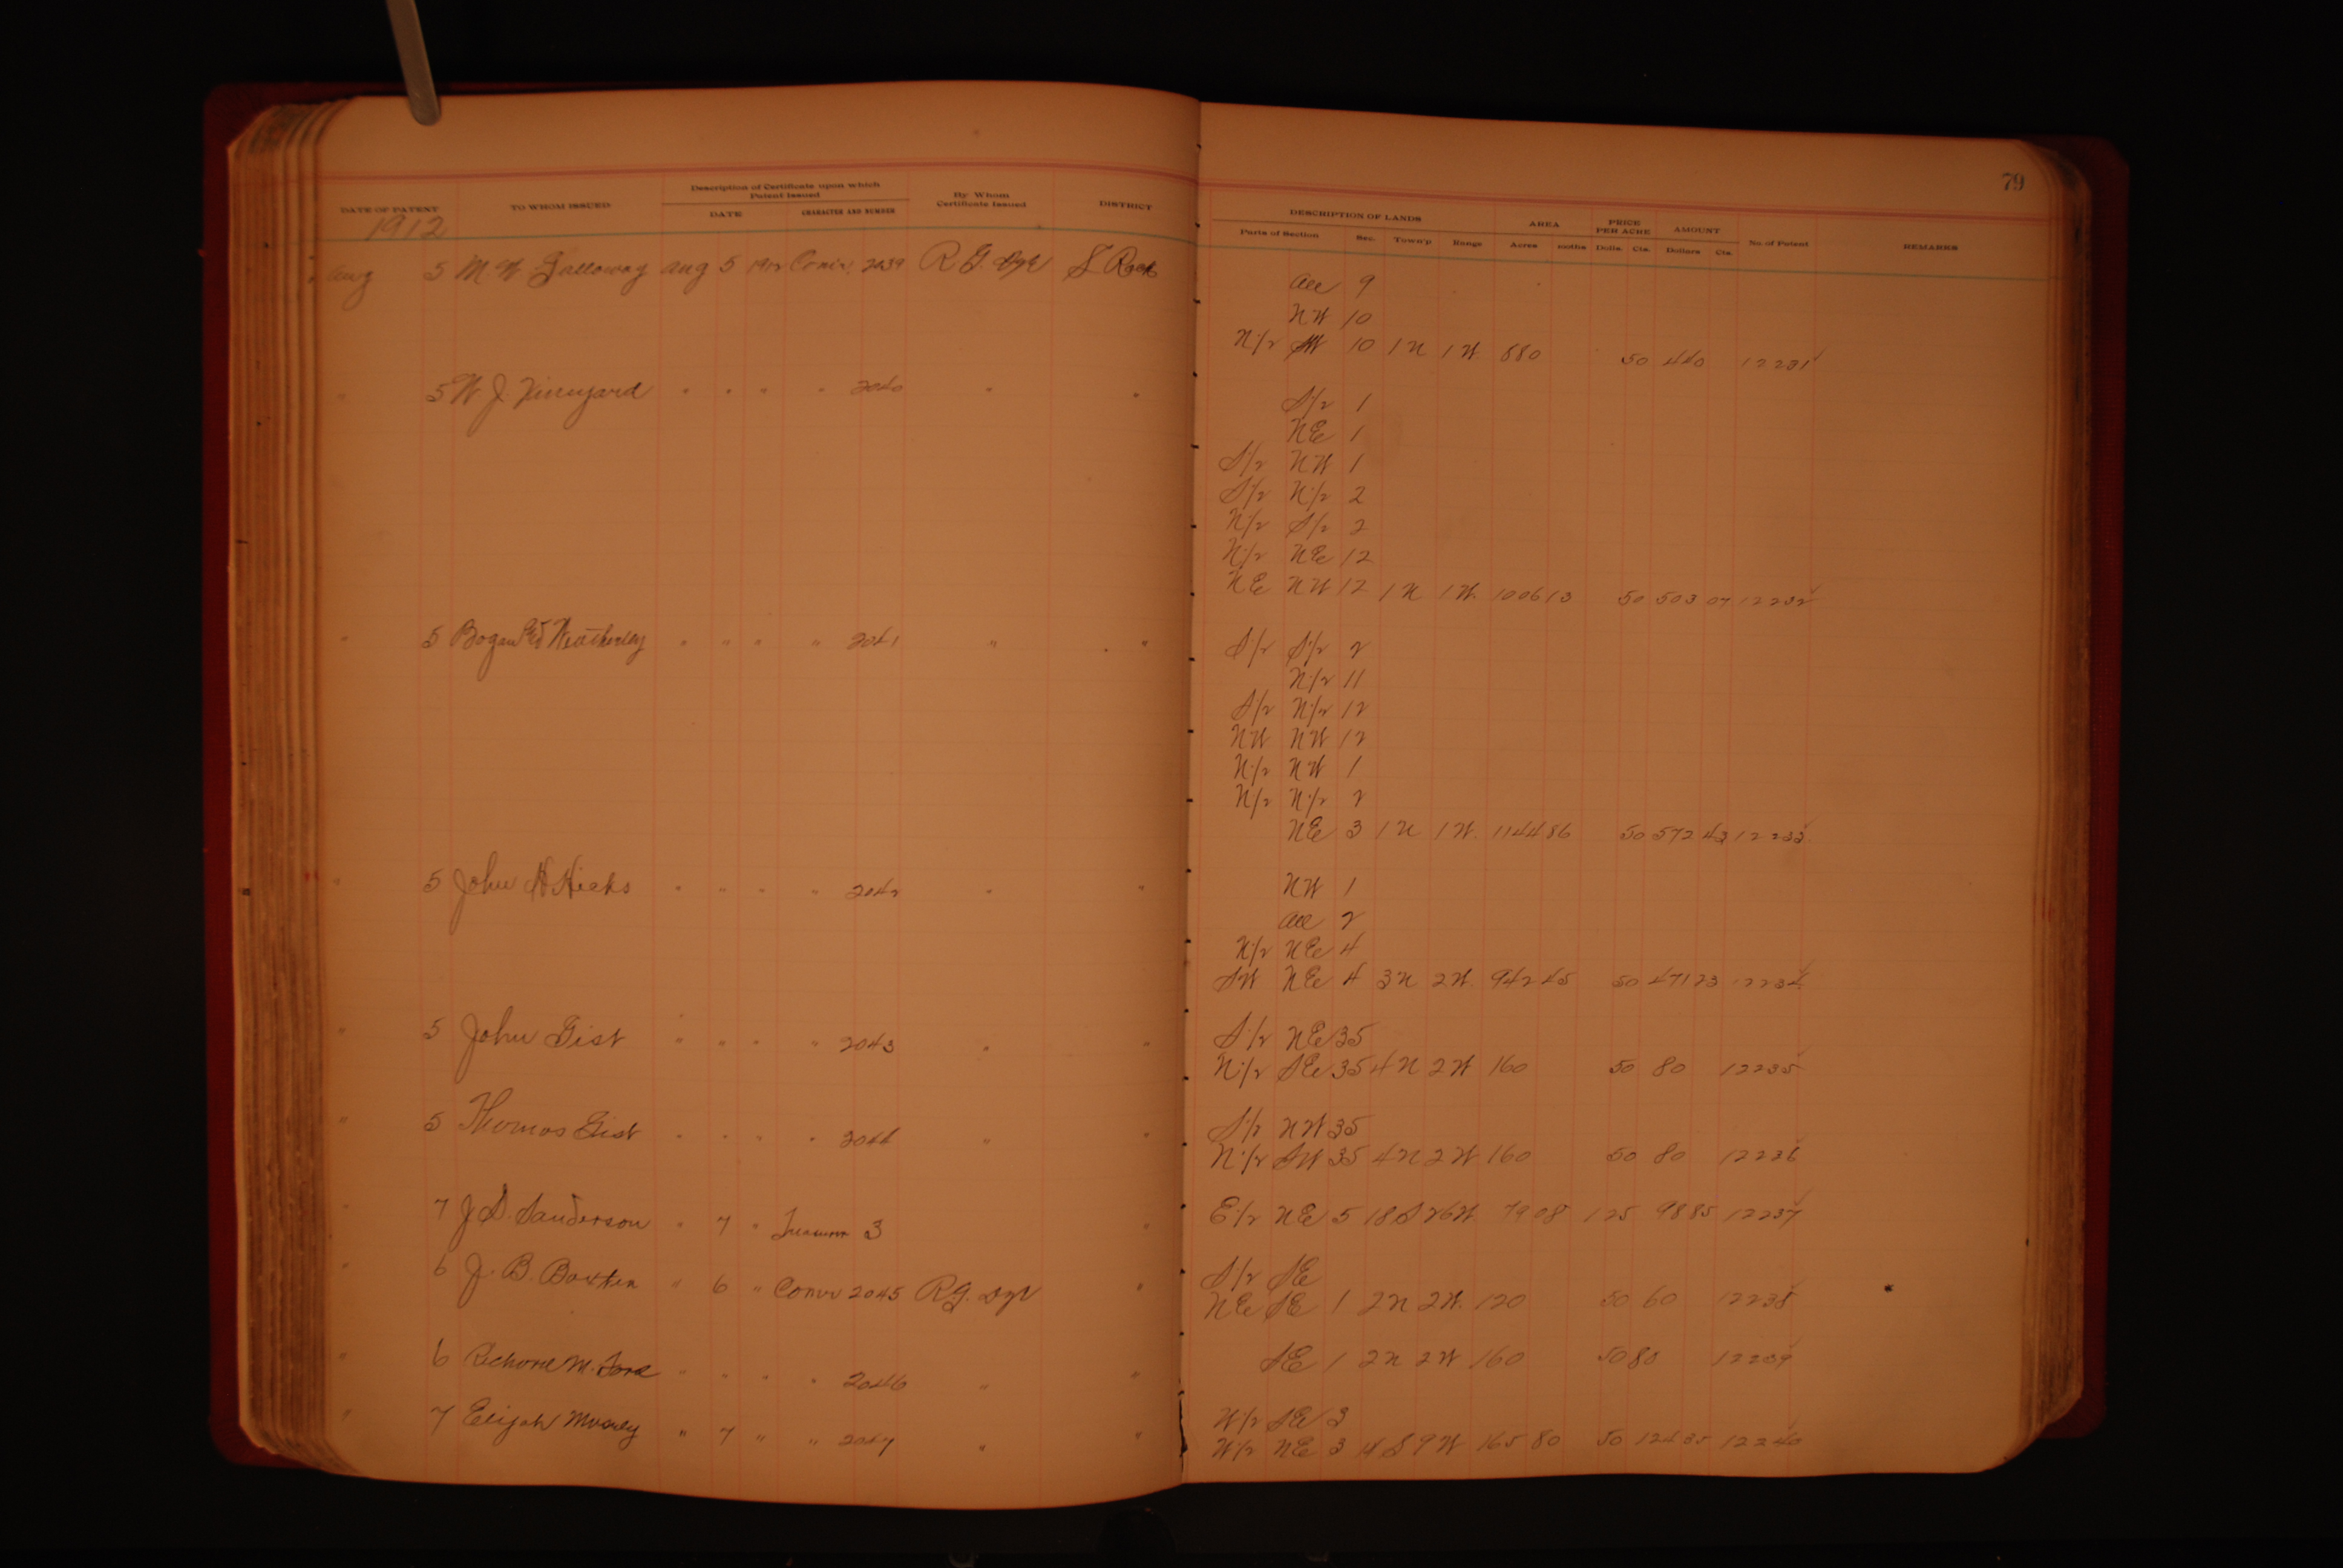 79
Description of Certificate upon which
Patent Issued
DATE OF PATENT TO WHOM ISSUED DATE CHARACTER AND NUMBER By Whom Certificate Issued DISTRICT
DESCRIPTION OF LANDS AREA PRICE PER ACRE AMOUNT No. of Patent REMARKS
Parts of Section Sec. Town'p Range Acres Dolls. Cts. Dollars Cts.
1912
Aug 5 M. W. Galloway Aug 5 1912 2039 R G. L Rock
All 9
NW 10
N/2 SW 10 1 N 1 W 880 50 440 12231
" 5 W J. Vineyard " " " " 2040 " "
S/2 1
NE 1
S/2 NW 1
S/2 N/2 2
N/2 S/2 2
N/2 NE 12
NE NW 12 1 N 1 W. 1006 13 50 503 07 12232
" 5 Bogan Weatherley " " " " 2041 " "
S/2 S/2 2
N/2 11
S/2 N/2 12
NW NW 12
N/2 NW 1
N/2 N/2 2
NE 3 1 N 1 W. 1144 86 50 572 43 12233
" 5 John H Hicks " " " " 2042 " "
NW 1
All 2
N/2 NE 4
SW NE 4 3 N 2 W. 942 45 50 471 23 12234
" 5 John Gist " " " " 2043 " "
S/2 NE 35
N/2 SE 35 4 N 2 W 160 50 80 12235
" 5 Thomas Gist " " " " 2044 " "
S/2 NW 35
N/2 SW 35 4 N 2 W 160 50 80 12236
" 7 J S. Sanderson " 7 " 3 "
E/2 NE 5 18 S 26 W. 79 08 1 25 98 85 12237
" 6 J. B. " 6 " 2045 R G. "
S/2 SE
NE SE 1 2 N 2 W. 120 50 60 12238
" 6 M. " " " " 2046 " "
SE 1 2 N 2 W 160 50 80 12239
" 7 Elijah " 7 " " 2047 " "
W/2 SE 3
W/2 NE 3 14 S 9 W 165 80 50 12240